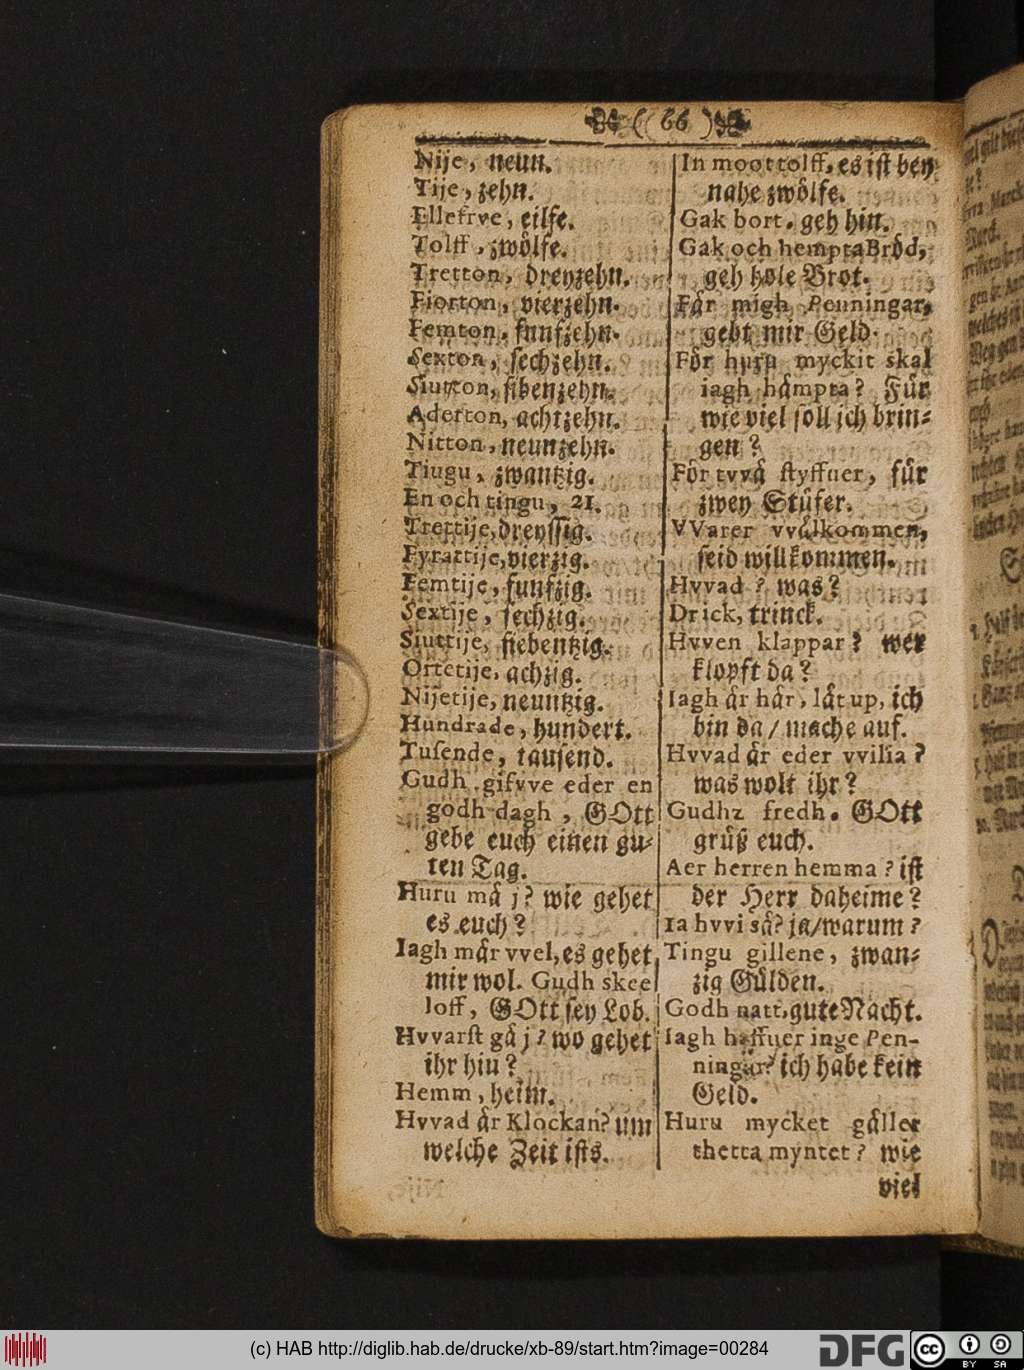 ( 66 )
Nije, neun.
Tije, zehn.
Ellefrve, eilfe.
Tolff, zwoͤlfe.
Tretton, dreyzehn.
Fiorton, vierzehn.
Femton, funfzehn.
Sexton, sechzehn.
Siutton, sibenzehn.
Aderton, achtzehn.
Nitton, neunzehn.
Tiugu, zwantzig.
En och tingu, 21.
Trettije, dreyssig.
Fyrattije, vierzig.
Femtije, funfzig.
Sextije, sechzig.
Siuttije, siebentzig.
Ottetije, achzig.
Nijetije, neuntzig.
Hundrade, hundert.
Tusende, tausend.
Gudh gifvve eder en
godh dagh, GOtt
gebe euch einen gu-
ten Tag.
Huru må j? wie gehet
es euch?
Iagh mår vvel, es gehet
mir wol. Gudh skee
loff, GOtt sey Lob.
Hvvarst gå j? wo gehet
ihr hin?
Hemm, heim.
Hvvad år Klockan? um
welche Zeit ists.
In moot tolff, es ist bey
nahe zwoͤlfe.
Gak bort, geh hin.
Gak och hempta Broͤd,
geh hole Brot.
Får migh Penningar,
gebt mir Geld.
Foͤr huru myckit skal
iagh håmpta? Fuͤr
wie viel soll ich brin-
gen?
Foͤr tvvå styffuer, fuͤr
zwey Stuͤfer.
VVarer vvålkommen,
seid willkommen.
Hvvad? was?
Drick, trinck.
Hvven klappar? wer
klopft da?
Iagh år hår, låt up, ich
bin da / mache auf.
Hvvad år eder vvilia?
was wolt ihr?
Gudhz fredh. GOtt
gruͤß euch.
Aer herren hemma? ist
der Herr daheime?
Ia hvvi så? ja/warum?
Tingu gillene, zwan-
zig Guͤlden.
Godh natt, gute Nacht.
Iagh haffuer inge Pen-
ningar? ich habe kein
Geld.
Huru mycket gåller
thetta myntet? wie
viel
(c) HAB http://diglib.hab.de/drucke/xb-89/start.htm?image=00284
DFG
cc BY SA